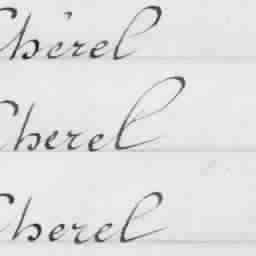 Chérel
Cherel
Cherel